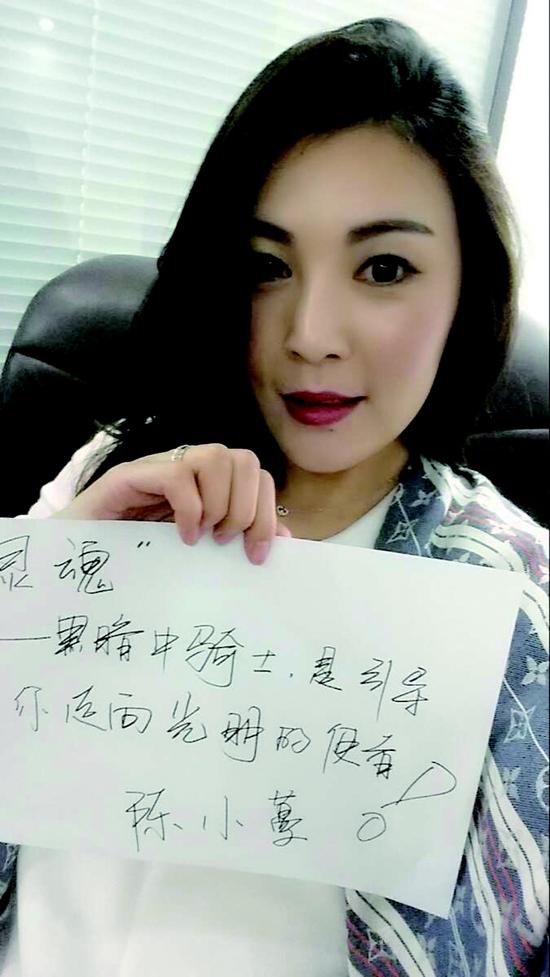 灵魂"
—黑暗中骑士,是引导
你迈向光明的使者!
陈小蔓